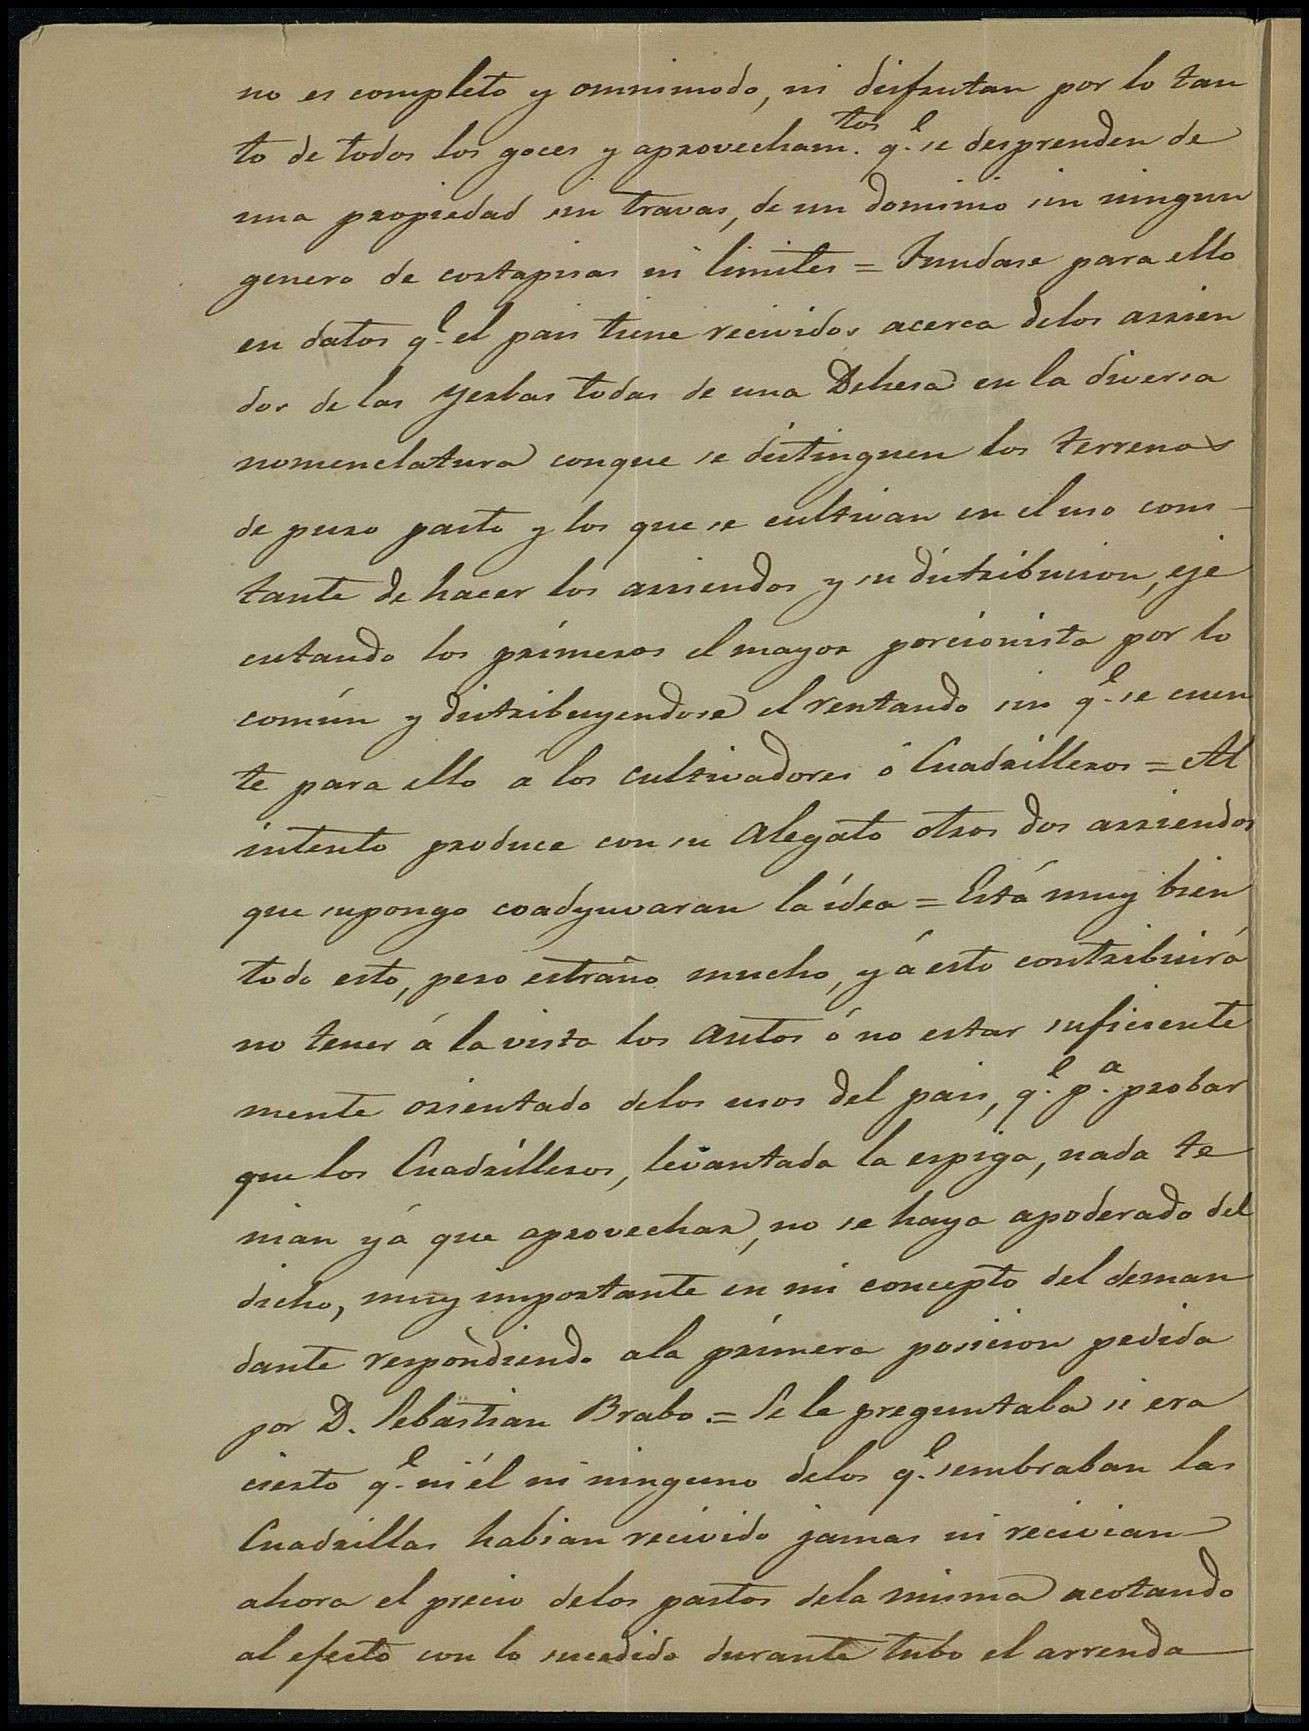 no es completo y omnimodo, ni disfrutan por lo tan
to de todos los goces y aprovecham.tos q.e se desprenden de
una propiedad sin travas, de un dominio sin ningun
genero de cortapisas ni limites = Fundase para ello
en datos q.e el pais tiene recividos acerca delos arrien
dos de las Yerbas todas de una Dehesa en la diversa
nomenclatura conque se distinguen los terrenos
de puro pasto y los que se cultivan en el uso cons-
tante de hacer los arriendos y su distribucion, eje
cutando los primeros el mayor porcionista por lo
común y distribuyendose el rentando sin q.e se cuen
te para ello á los cultivadores ó Cuadrilleros = Al
intento produce con su alegato otros dos arriendos
que supongo coadyuvaran la ídea = Está muy bien
todo esto, pero estraño mucho, y á esto contribuirá
no tener á la vista los autos ó no estar suficiente
mente orientado delos usos del pais, q.e p.a probar
que los Cuadrilleros, levantada la espiga, nada te
nian yá que aprovechar, no se haya apoderado del
dicho, muy importante en mi concepto del deman
dante respondiendo ala primera posicion pedida
por D. Sebastian Brabo. = Se le preguntaba si era
cierto q.e ni él ni ninguno delos q.e sembraban las
Cuadrillas habian recivido jamas ni recivian
ahora el precio delos pastos dela misma acotando
al efecto con lo sucedido durante tubo el arrenda